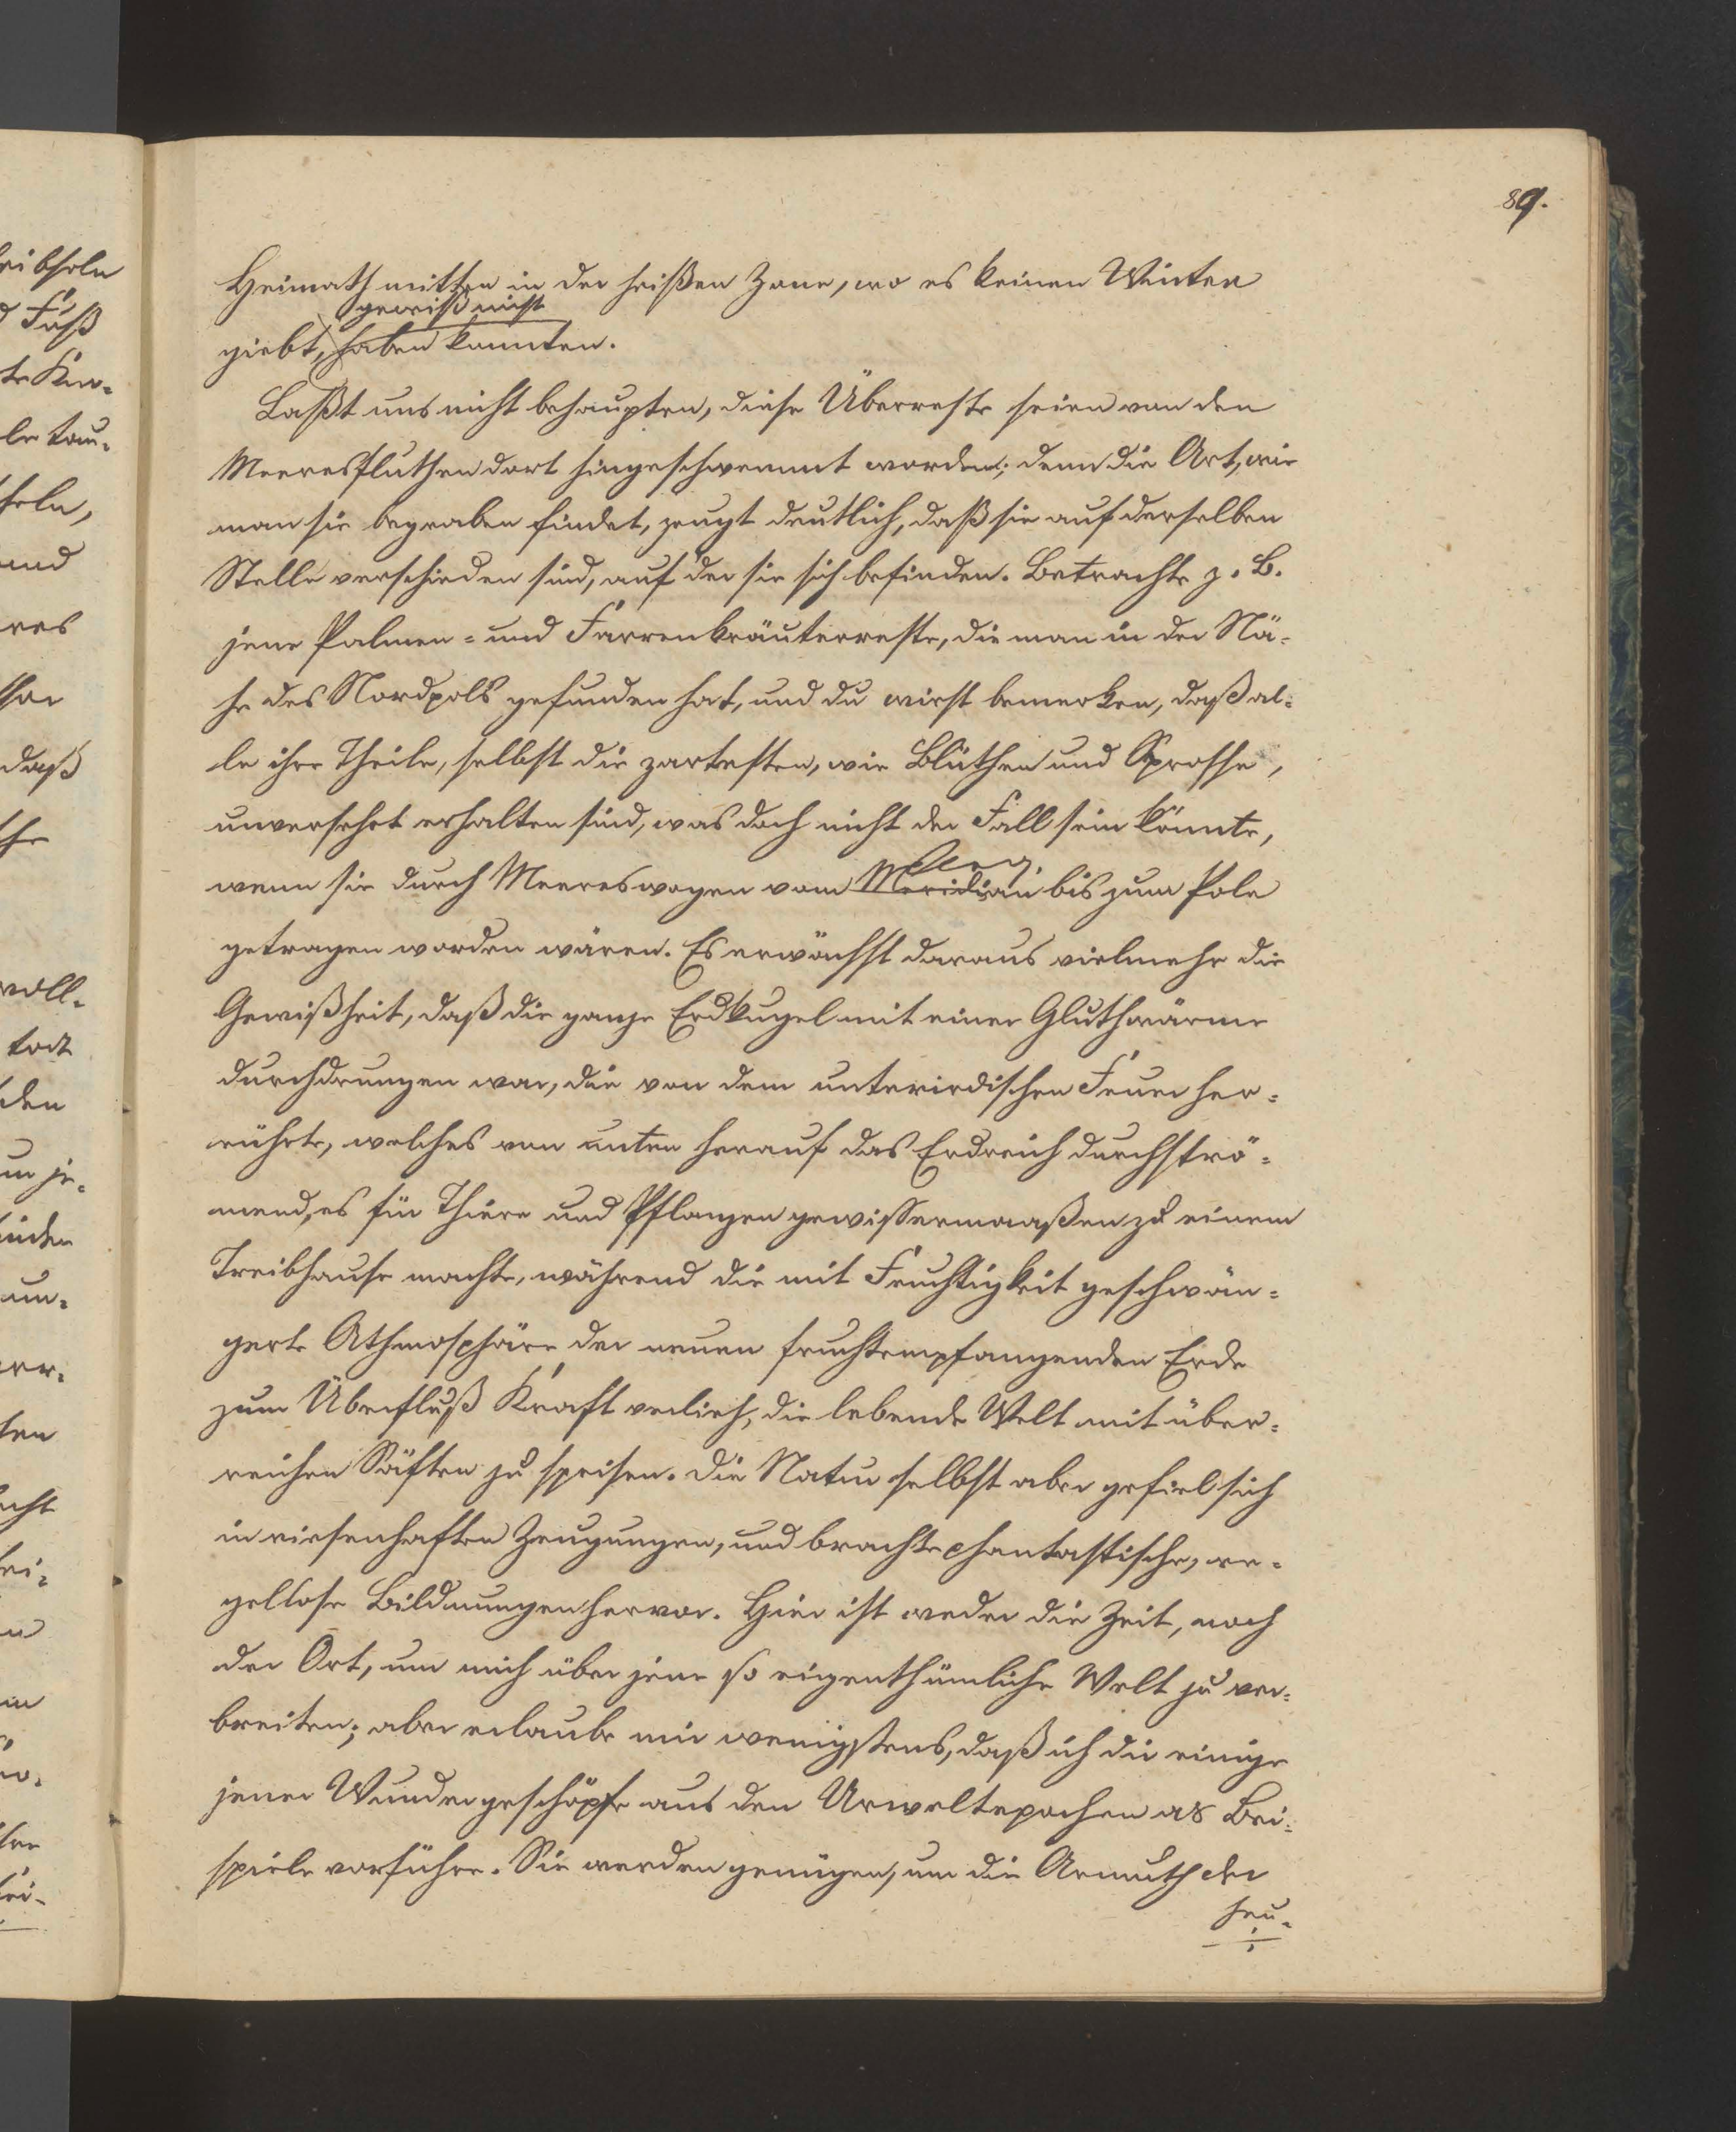 89.
Heimath mitten in der heißen Zone, wo es keinen Winter
gewiß nicht
giebt, haben konnten.
Laßt uns nicht behaupten, diese Überreste seien von den
Meeresfluthen dort hingeschwemmt worden; denn die Art, wie
man sie begraben findet, zeugt deutlich, daß sie auf derselben
Stelle verschieden sind, auf der sie sich befinden. Betrachte z. B.
jene Palmen- und Farrenkräuterreste, die man in der Nä-
he des Nordpols gefunden hat, und du wirst bemerken, daß al-
le ihre Theile, selbst die zartesten, wie Blüthen und Sprosse,
unversehrt erhalten sind, was doch nicht der Fall sein könnte,
wenn sie durch Meereswogen vom Meridian bis zum Pole
getragen worden wären. Es erwächst daraus vielmehr die
Gewißheit, daß die ganze Erdkugel mit einer Gluthwärme
durchdrungen war, die von dem unterirdischen Feuer her-
rührte, welches von unten herauf das Erdreich durchströ-
mend, es für Thiere und Pflanzen gewissermaaßen zu einem
Treibhause machte, während die mit Feuchtigkeit geschwän-
gerte Athmosphäre der neuen fruchtempfangenden Erde
zum Überfluß Kraft verlieh, die lebende Welt mit über-
reichen Säften zu speisen. Die Natur selbst aber gefiel sich
in riesenhaften Zeugungen, und brachte phantastische, re-
gellose Bildnungen hervor. Hier ist weder die Zeit, noch
der Ort, um mich über jene so eigenthümliche Welt zu ver-
breiten; aber erlaube mir wenigstens, daß ich dir einige
jener Wundergeschöpfe aus den Urweltepochen as Bei-
spiele vorführe. Sie werden genügen, um die Armuth der
heu-